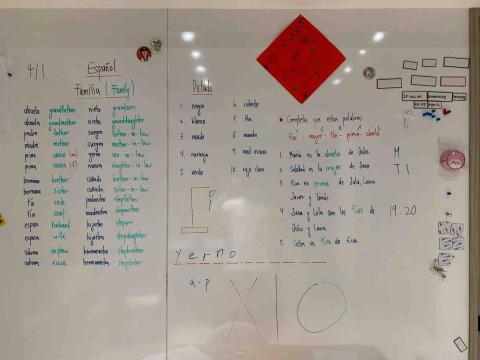 4/1 Español
Familia (Family)
abuelo grandfather nieto grandson
abuela grandmother nieta granddaughter
padre father suegro father-in-law
madre mother suegra mother-in-law
primo cousin (m) yerno son-in-law
prima cousin (f) nuera daughter-in-law
hermano brother cuñado brother-in-law
hermana sister cuñada sister-in-law
tío uncle padrastro stepfather
tía aunt madrastra stepmother
esposo husband hijastro stepson
esposa wife hijastra stepdaughter
sobrino nephew hermanastro stepbrother
sobrina niece hermanastra stepsister
Dictado
1. negro 6. celeste
2. blanco 7. lila
3. rosado 8. marrón
4. naranja 9. azul oscuro
5. verde 10. rojo claro
Yerno
a - p
X | O
Completa con estas palabras
tíos - mujer - tía - prima - abuela
1. María es la abuela de Julia
2. Soledad es la mujer de Juan
3. Eva es prima de Julia, Laura
Javier y Tomás
4. Juan y Lola son los tíos de
Julia y Laura
5. Celia es tía de Eva.
M
T 1
19:20